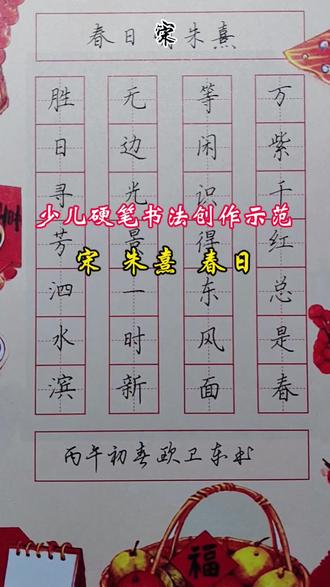 春日 宋 朱熹
胜日寻芳泗水滨
无边光景一时新
等闲识得东风面
万紫千红总是春
少儿硬笔书法创作示范
宋 朱熹 春日
丙午初春欧卫东书
福